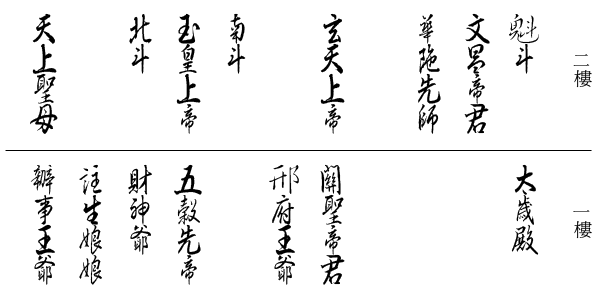 二樓
魁斗
文昌帝君
華陀先師
玄天上帝
南斗
玉皇上帝
北斗
天上聖母
一樓
太歲殿
關聖帝君
邢府王爺
五穀先帝
財神爺
註生娘娘
辦事王爺